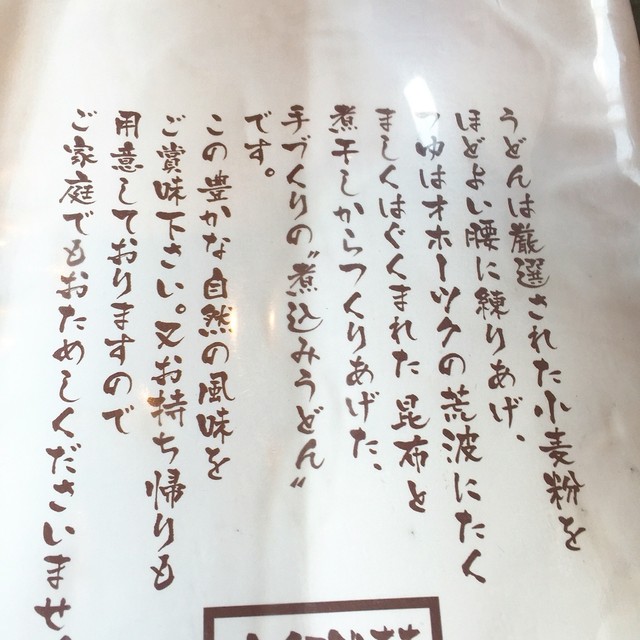 うどんは厳選された小麦粉を
ほどよい腰に練りあげ、
つゆはオホーツクの荒波にたく
ましくはぐくまれた昆布と
煮干しからつくりあげた、
手づくりの〝煮込みうどん〟
です。
この豊かな自然の風味を
ご賞味下さい。又お持ち帰りも
用意しておりますので
ご家庭でもおためしくださいませ